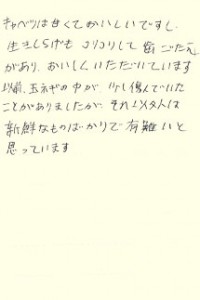 キャベツは甘くておいしいですし、
生きくらげも コリコリして 歯ごたえ
があり、おいしくいただいています
以前、玉ネギの中が、少し傷んでいた
ことがありましたが、それ以外は
新鮮なものばかりで有難いと
思っています